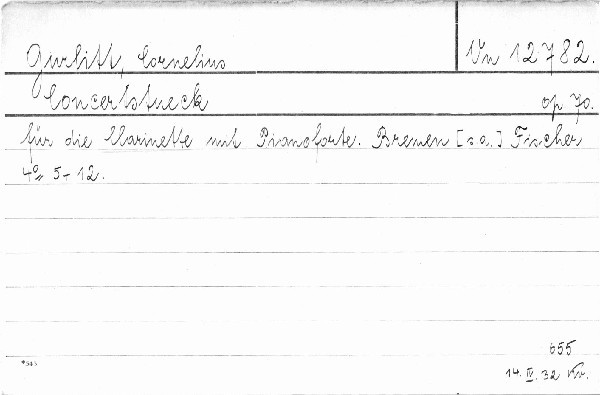 Gurlitt, Cornelius Vn 12782.
Concertstueck op 70.
für die Clarinette mit Pianoforte. Bremen [s.a.] Fischer
4° 5-12.
655
*543
14. IV. 32 Kr.